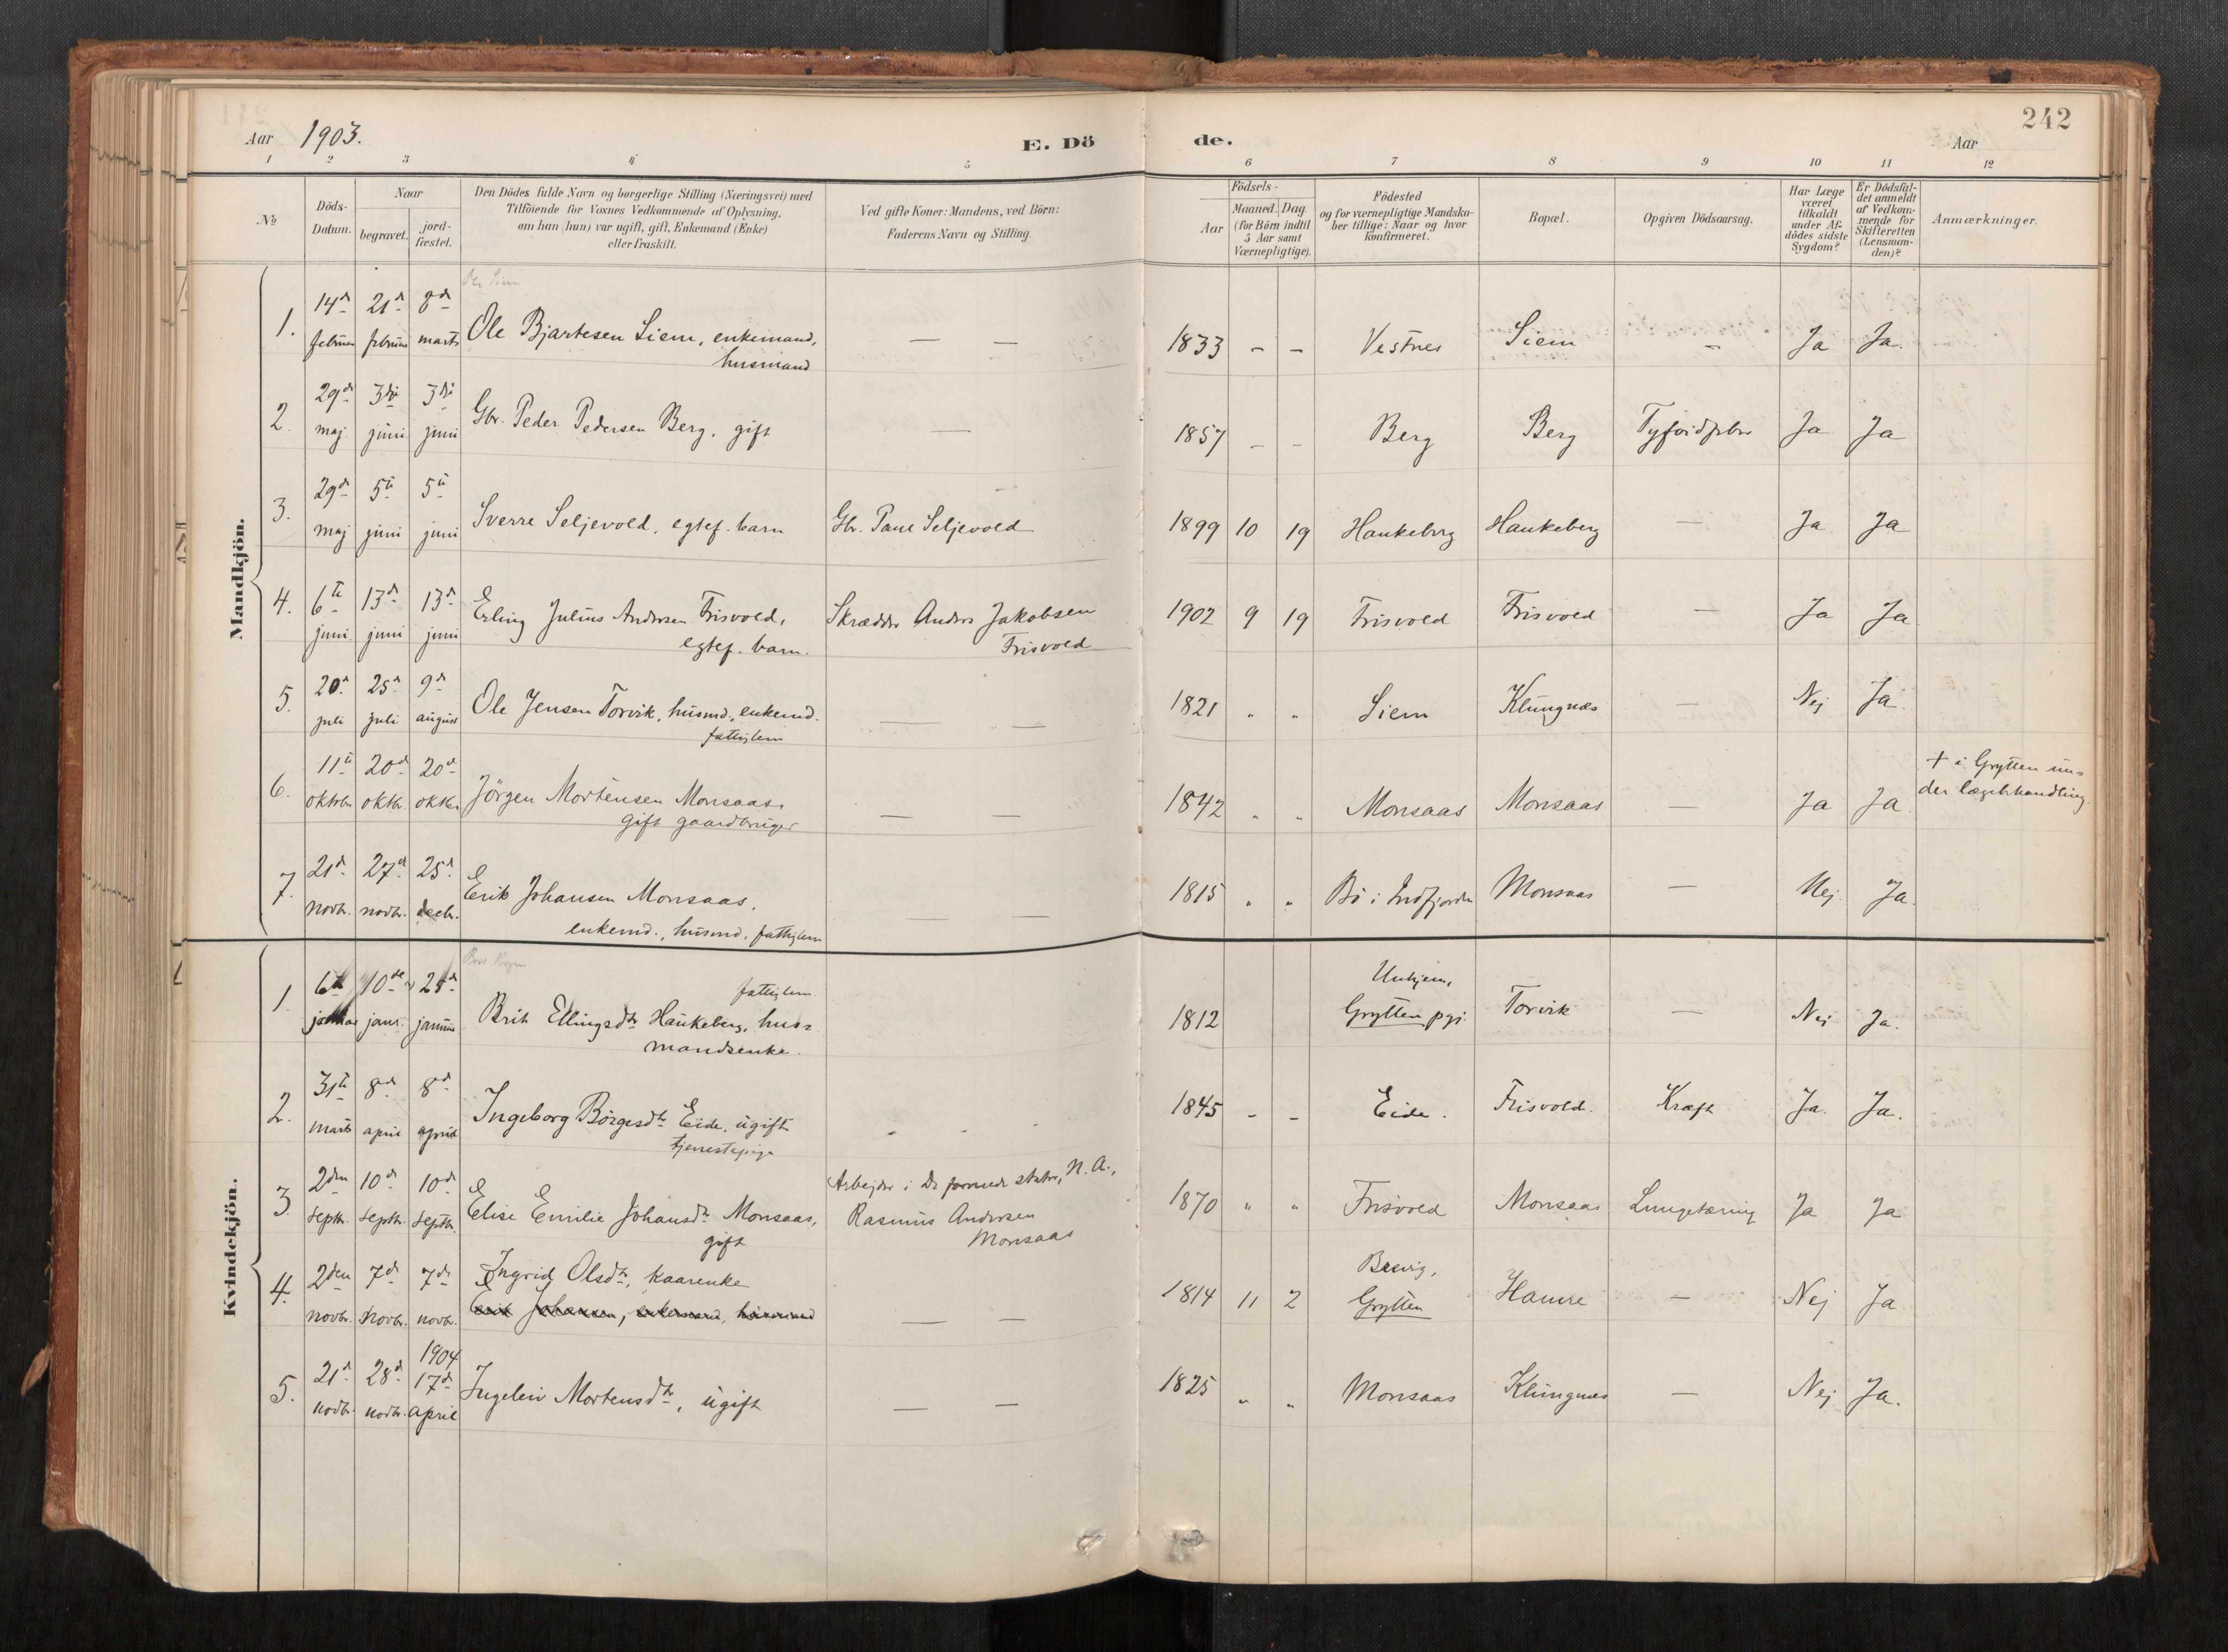 Aar 1903. E. Dö de. Aar 242
1 2 3 4 5 6 7 8 9 10 11 12
№
Döds-Datum.
Naar
begravet.
jord-fæstet.
Den Dödes fulde Navn og borgerlige Stilling (Næringsvei) med
Tilföiende for Voxnes Vedkommende af Oplysning,
om han (hun) var ugift, gift, Enkemand (Enke)
eller fraskilt.
Ved gifte Koner: Mandens, ved Börn:
Faderens Navn og Stilling.
Födsels-
Aar
Maaned. Dag.
(for Börn indtil
5 Aar samt
Værnepligtige).
Födested
og for værnepligtige Mandska-
ber tillige: Naar og hvor
konfirmeret.
Bopæl.
Opgiven Dödsaarsag.
Har Læge
været
tilkaldt
under Af-
dödes sidste
Sygdom?
Er Dödsfal-
det anmeldt
af Vedkom-
mende for
Skifteretten
(Lensman-
den)?
Anmærkninger.
Mandkjön.
1. 14d 21d 8d
februar februar marts Ole Bjartesen Siem, enkemand, — — 1833 - - Vestnes Siem - Ja Ja.
husmand
2. 29d 3die 3die
maj juni juni Gbr. Peder Pedersen Berg, gift — 1857 - - Berg Berg Tyfoidfeber Ja Ja
3. 29d 5te 5te
maj juni juni Sverre Seljevold, egtef. barn Gbr. Paul Seljevold 1899 10 19 Haukeberg Haukeberg — Ja Ja
4. 6te 13d 13d
juni juni juni Erling Julius Andersen Frisvold, Skrædder Anders Jakobsen 1902 9 19 Frisvold Frisvold — Ja Ja
egtef. barn. Frisvold
5. 20d 25d 9d
juli juli august Ole Jensen Torvik, husmd., enkemd. — — 1821 " " Siem Klungnæs — Nej Ja.
fattiglem
6. 11te 20d 20d
oktober oktbr oktbr Jörgen Mortensen Monsaas, — — 1842 " " Monsaas Monsaas — Ja Ja + i Grytten un-
gift gaardbruger der lægebehandling.
7. 21d 27d 25d
novbr. novbr. decbr. Erik Johansen Monsaas, — — 1815 " " Bö i Indfjorden Monsaas — Nej Ja.
enkemd., husmd, fattiglem
Kvindekjön.
fattiglem Unhjem,
1. 6te 10de 25d
januar janr. januar Brit Ellingsdtr Haukeberg, hus- 1812 Grytten pgj. Torvik — Nej Ja.
mandsenke.
2. 31te 8d 8d
marts april april Ingeborg Börgesdtr Eide, ugift - - - 1845 - - Eide. Frisvold. Kræft Ja. Ja.
tjenestepige
3. 2den 10d 10d Arbejder i De forenede stater, N.A.,
septbr. septbr. septbr. Elise Emilie Johansdtr Monsaas, Rasmus Andersen 1870 " " Frisvold Monsaas Lungetæring Ja Ja
gift Monsaas
4. 2den 7d 7d Ingrid Olsdtr, kaarenke
novbr. novbr. novbr. Erik Johansen, enkemand, husmand — — 1814 11 2 Grytten Hamre — Nej Ja
1904
5. 21d 28d 17d
novbr. novbr. april Ingeleiv Mortensdtr, ugift — — 1825 " " Monsaas Klungnes — Nej Ja.